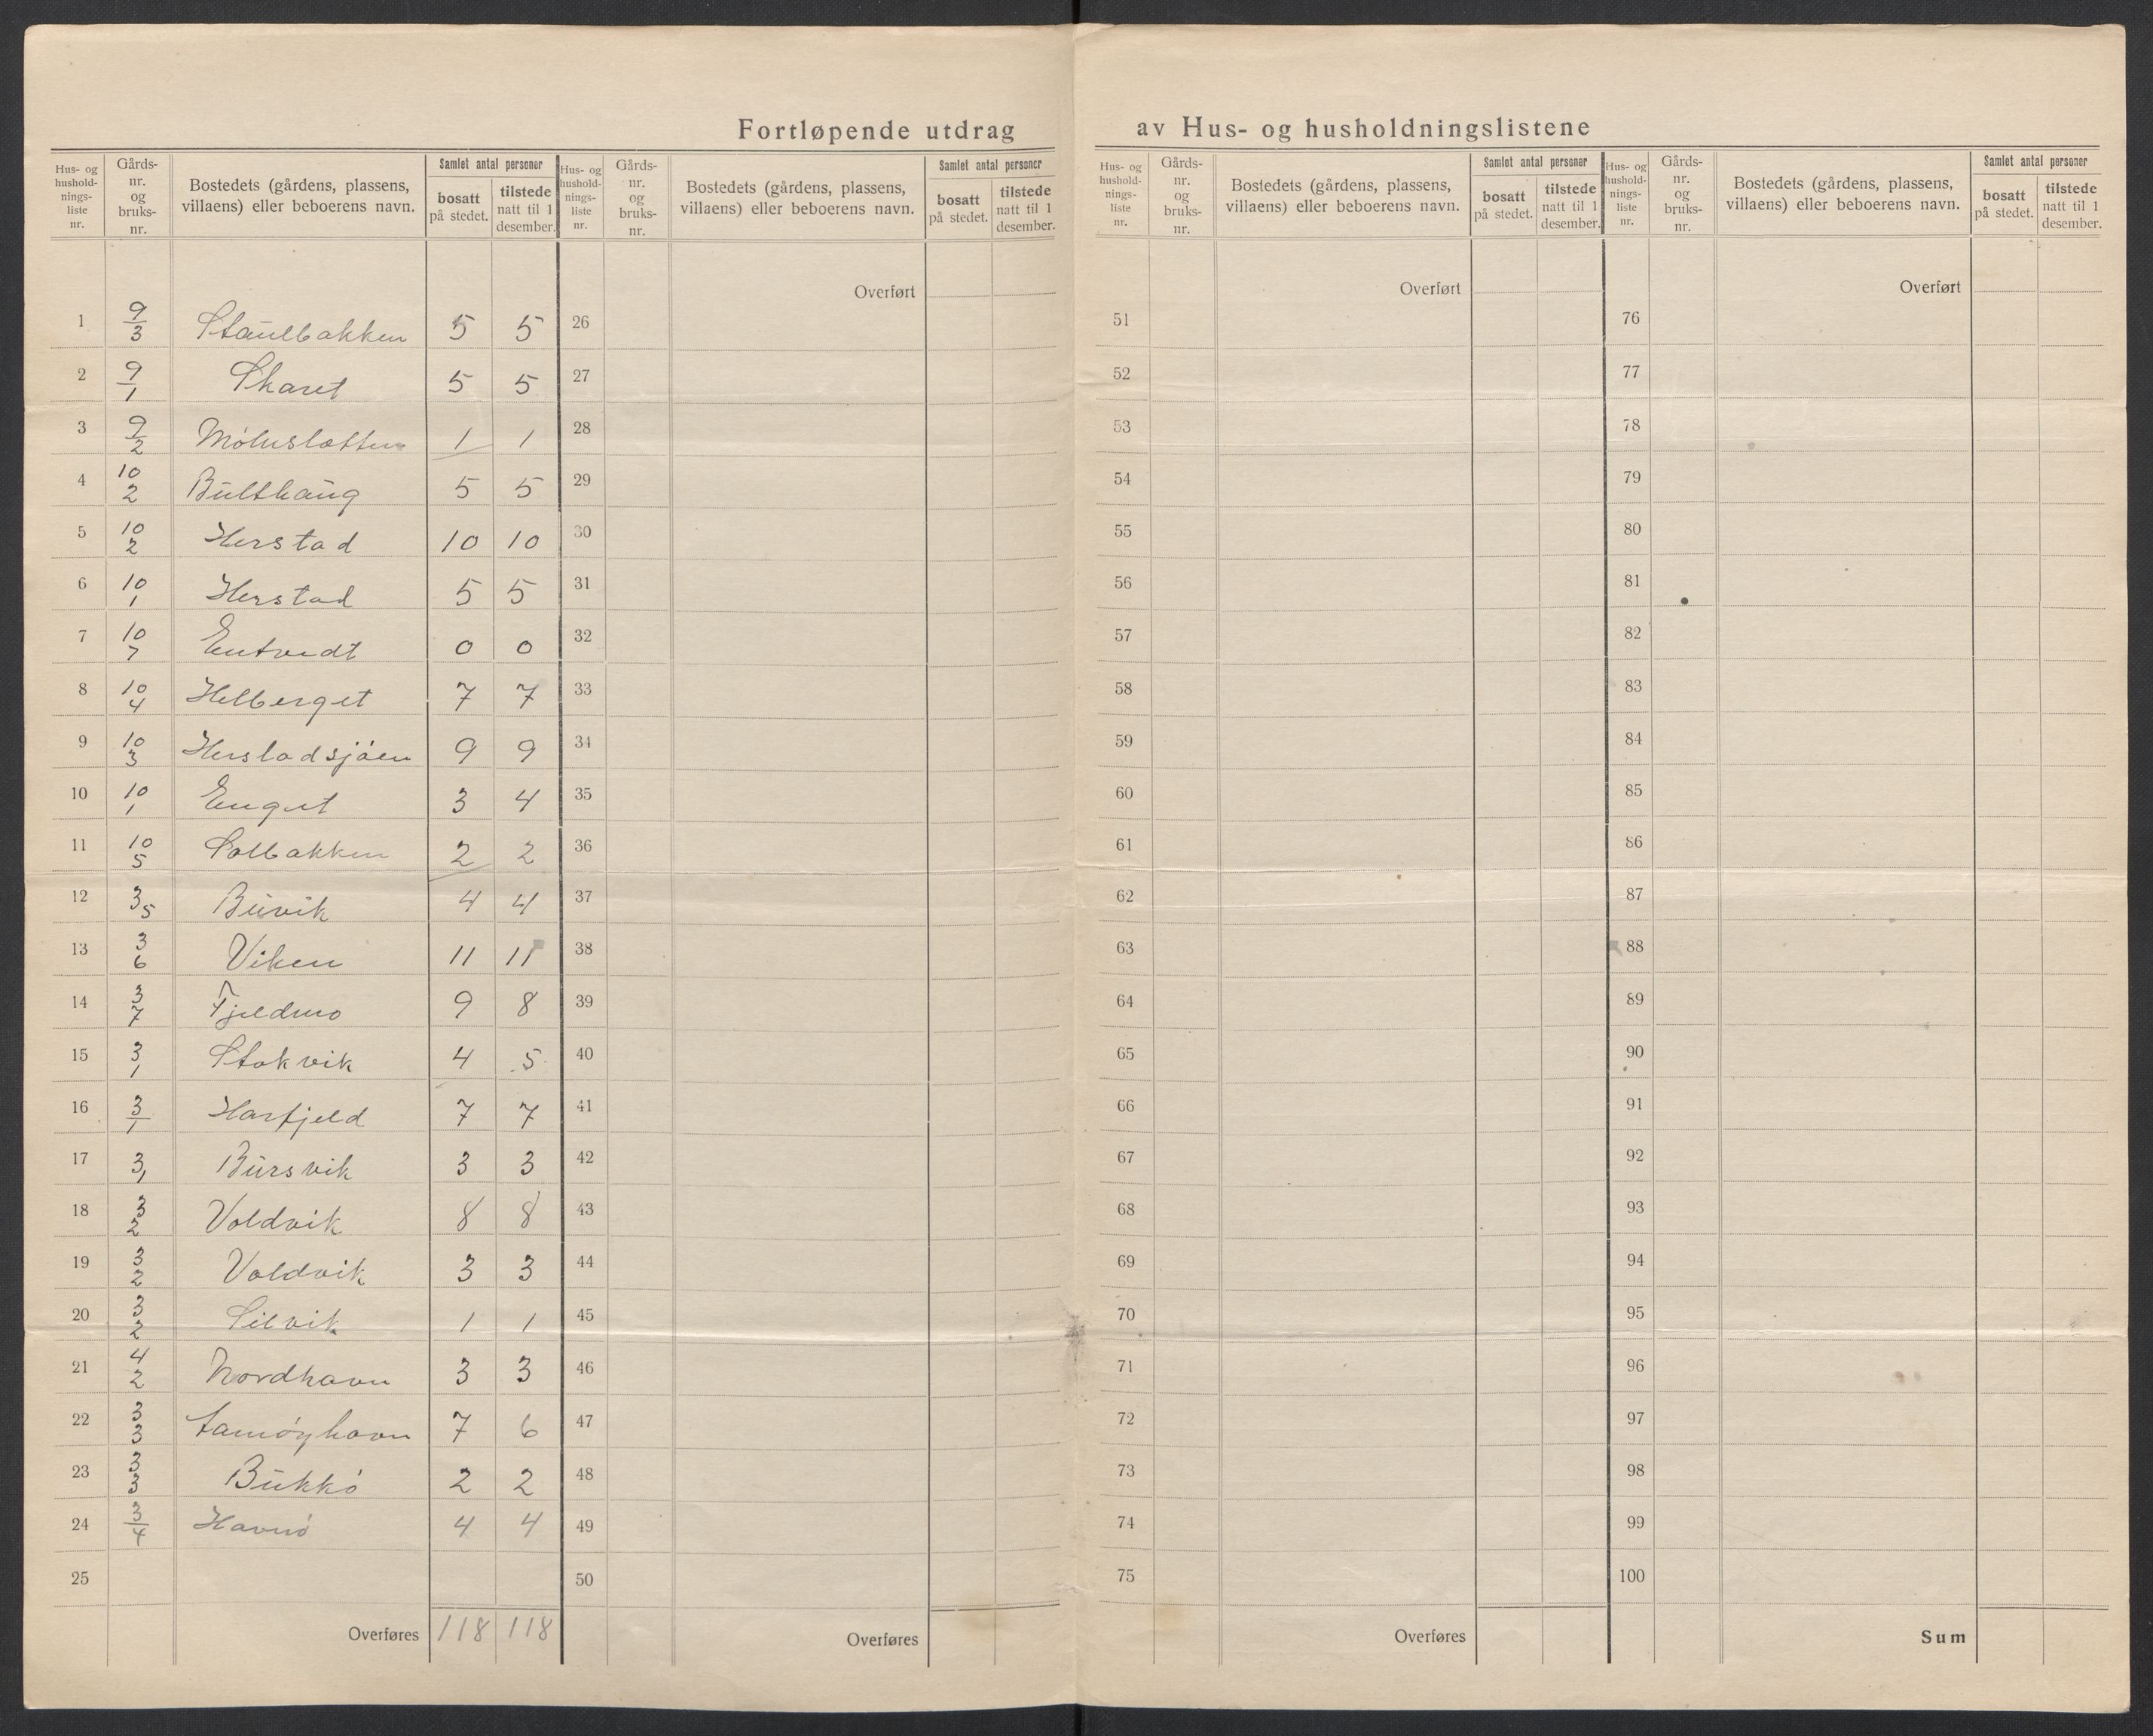 Fortløpende utdrag av Hus- og husholdningslistene
Hus- og hushold-nings-liste nr. Gårds-nr. og bruks-nr. Bostedets (gårdens, plassens, villaens) eller beboerens navn. Samlet antal personer bosatt på stedet. tilstede natt til 1 desember.
Hus- og hushold-nings-liste nr. Gårds-nr. og bruks-nr. Bostedets (gårdens, plassens, villaens) eller beboerens navn. Samlet antal personer bosatt på stedet. tilstede natt til 1 desember.
Hus- og hushold-nings-liste nr. Gårds-nr. og bruks-nr. Bostedets (gårdens, plassens, villaens) eller beboerens navn. Samlet antal personer bosatt på stedet. tilstede natt til 1 desember.
Hus- og hushold-nings-liste nr. Gårds-nr. og bruks-nr. Bostedets (gårdens, plassens, villaens) eller beboerens navn. Samlet antal personer bosatt på stedet. tilstede natt til 1 desember.
Overført Overført Overført
1 9/3 Staulbakken 5 5 26 51 76
2 9/1 Skaret 5 5 27 52 77
3 9/2 1 1 28 53 78
4 10/2 Bulthaug 5 5 29 54 79
5 10/2 Herstad 10 10 30 55 80
6 10/1 Herstad 5 5 31 56 81
7 10/7 0 0 32 57 82
8 10/4 Helberget 7 7 33 58 83
9 10/3 Herstadsjøen 9 9 34 59 84
10 10/1 Enget 3 4 35 60 85
11 10/5 Solbakken 2 2 36 61 86
12 3/5 Buvik 4 4 37 62 87
13 3/6 Viken 11 11 38 63 88
14 3/7 Fjeldmo 9 8 39 64 89
15 3/1 Stokvik 4 5 40 65 90
16 3/1 Harfjeld 7 7 41 66 91
17 3/1 Bursvik 3 3 42 67 92
18 3/2 Voldvik 8 8 43 68 93
19 3/2 Voldvik 3 3 44 69 94
20 3/2 Silvik 1 1 45 70 95
21 4/2 Nordhavn 3 3 46 71 96
22 3/3 7 6 47 72 97
23 3/3 Bukkø 2 2 48 73 98
24 3/4 Havnø 4 4 49 74 99
25 50 75 100
Overføres 118 118 Overføres Overføres Sum